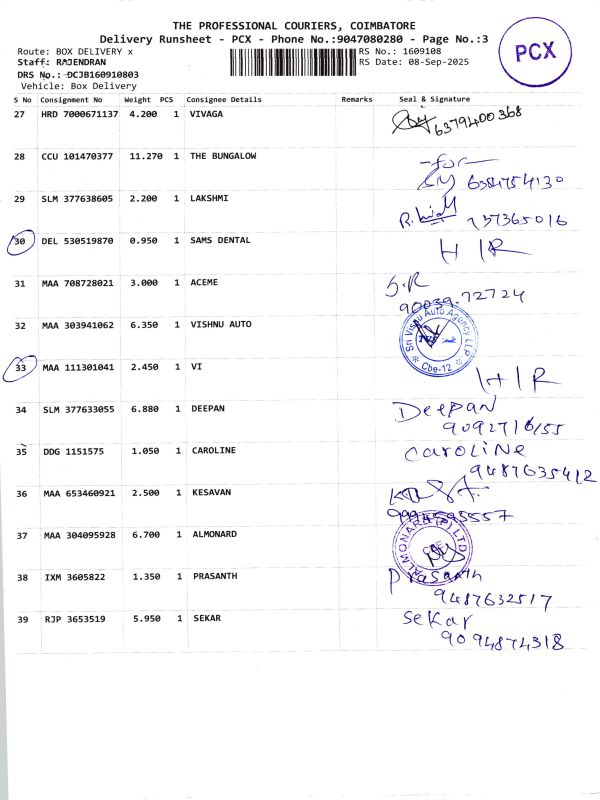 THE PROFESSIONAL COURIERS, COIMBATORE
Delivery Runsheet - PCX - Phone No.:9047080280 - Page No.:3
PCX
Route: BOX DELIVERY x
RS No.: 1609108
Staff: RAJENDRAN
RS Date: 08-Sep-2025
DRS No.: DCJB160910803
Vehicle: Box Delivery
S No Consignment No Weight PCS Consignee Details Remarks Seal & Signature
27 HRD 7000671137 4.200 1 VIVAGA
6379400368
28 CCU 101470377 11.270 1 THE BUNGALOW
-for-
6384754130
29 SLM 377638605 2.200 1 LAKSHMI
737365016
30 DEL 530519870 0.950 1 SAMS DENTAL H I R
31 MAA 708728021 3.000 1 ACEME S.R
90039.72724
32 MAA 303941062 6.350 1 VISHNU AUTO
Sri Vishnu Auto Agency LLP
* Cbe-12 *
33 MAA 111301041 2.450 1 VI H I R
34 SLM 377633055 6.880 1 DEEPAN Deepan
9092716155
35 DDG 1151575 1.050 1 CAROLINE CaroLiNe
9487635412
36 MAA 653460921 2.500 1 KESAVAN
9994593557
37 MAA 304095928 6.700 1 ALMONARD
ALMONARD (P) LTD
38 IXM 3605822 1.350 1 PRASANTH Prasanth
9487632517
39 RJP 3653519 5.950 1 SEKAR SeKar
9094874318